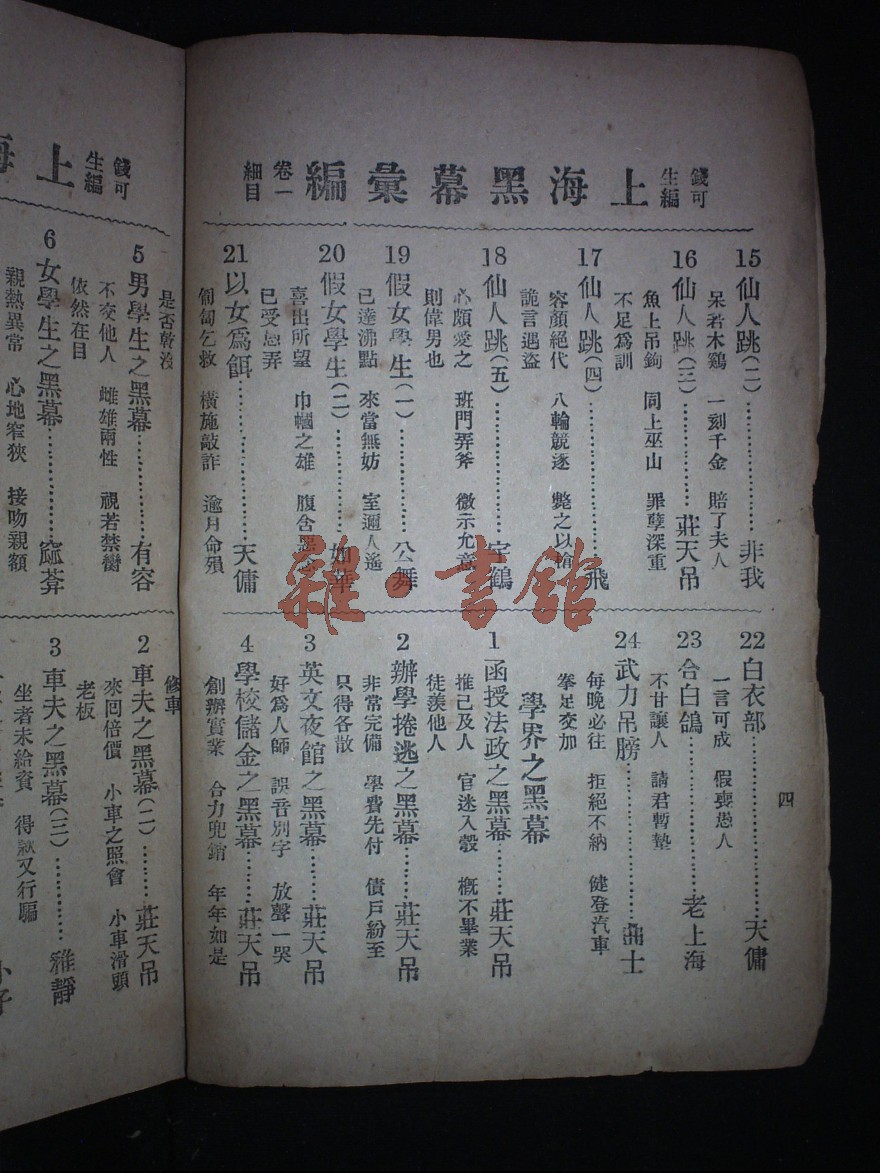 錢可
生編
上海黑幕彙編
卷一
細目
15仙人跳(二)………非我
呆若木鷄 一刻千金 賠了夫人
16仙人跳(三)………莊天吊
魚上吊鉤 同上巫山 罪孽深重
不足爲訓
17仙人跳(四)………飛
容顏絕代 八輪競逐 斃之以槍
詭言遇盜
18仙人跳(五)………鶴
心頗愛之 班門弄斧 微示允意
則偉男也
19假女學生(一)………公舞
已達沸點 來當無妨 室邇人遙
20假女學生(二)………如華
喜出所望 巾幗之雄 腹含
已受愚弄
21以女爲餌………天傭
匍匐乞救 橫施敲詐 逾月命殞
22白衣部………天傭
一言可成 假喪惑人
23合白鴿………老上海
不甘讓人 請君暫墊
24武力吊膀………士
每晚必往 拒絕不納 健登汽車
拳足交加
學界之黑幕
1函授法政之黑幕………莊天吊
推己及人 官迷入彀 槪不畢業
徒羨他人
2辦學捲逃之黑幕………莊天吊
非常完備 學費先付 債戶紛至
只得各散
3英文夜館之黑幕………莊天吊
好爲人師 誤音別字 放聲一哭
4學校儲金之黑幕………莊天吊
創辦實業 合力兜銷 年年如是
四
錢可
生編
上海
是否乾沒
5男學生之黑幕………有容
不交他人 雌雄兩性 視若禁臠
依然在目
6女學生之黑幕………
親熱異常 心地窄狹 接吻親額
修車
2車夫之黑幕(二)………莊天吊
來囘倍價 小車之照會 小車滑頭
老板
3車夫之黑幕(三)………雅靜
坐者未給資 得欵又行騙
雜·書館